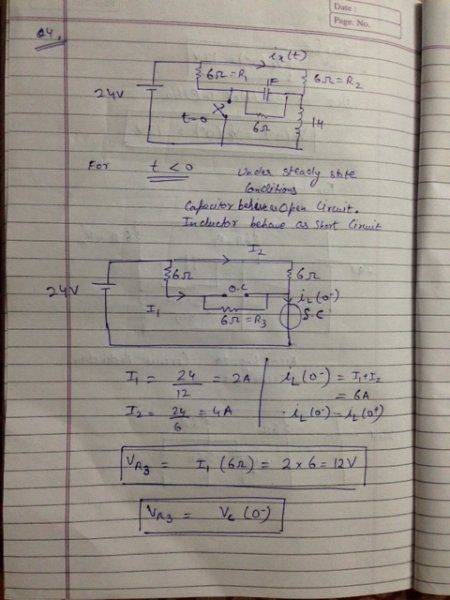 Date :
Page. No.
Q4.
ix(t)
6Ω = R1
1F
6Ω = R2
24V
t=0
6Ω
1H
For t < 0 Under steady state
Conditions
Capacitor behave as Open Circuit.
Inductor behave as Short Circuit
I2
6Ω
6Ω
24V
O.C
iL(0-)
I1
6Ω = R3
S.C
I1 = 24/12 = 2A
I2 = 24/6 = 4A
iL(0-) = I1+I2
= 6A
iL(0-) = iL(0+)
VR3 = I1 (6Ω) = 2 x 6 = 12V
VR3 = Vc (0-)